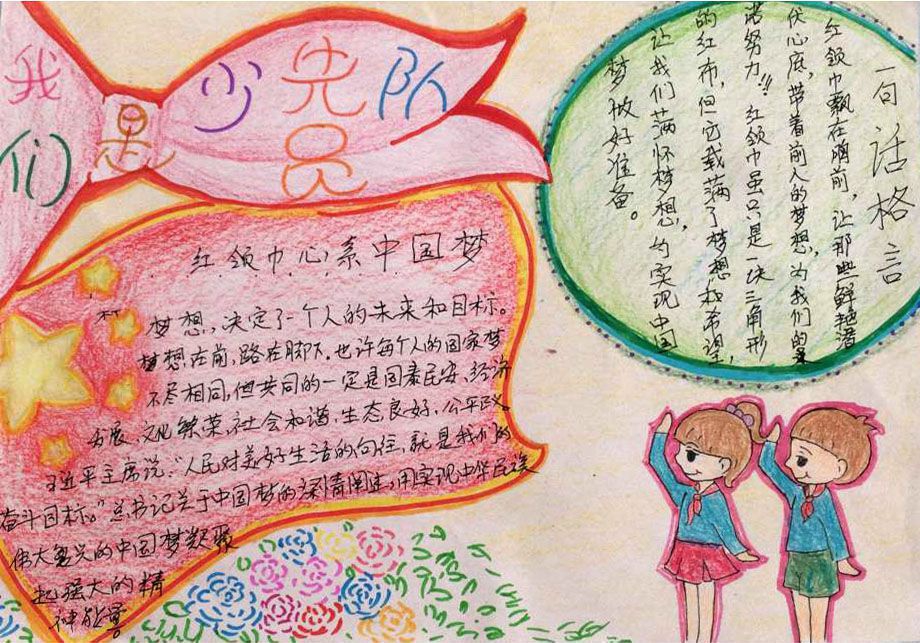 我们是少先队员
红领巾心系中国梦
梦想，决定了一个人的未来和目标。
梦想在前，路在脚下。也许每个人的国家梦
不尽相同，但共同的一定是国泰民安、经济
发展、文化繁荣、社会和谐、生态良好、公平
习近平主席说："人民对美好生活的向往，就是我们的
奋斗目标。"总书记关于中国梦的深情阐述，用实现中华民族
伟大复兴的中国梦凝聚
起强大的精
神能量
一句话格言
红领巾飘在胸前，让那些鲜艳
伏心底，带着前人的梦想，为我们的
努力!!! 红领巾虽只是一块三角形
的红布，但它载满了梦想和希望，
让我们满怀梦想，向实现中国
梦做好准备。